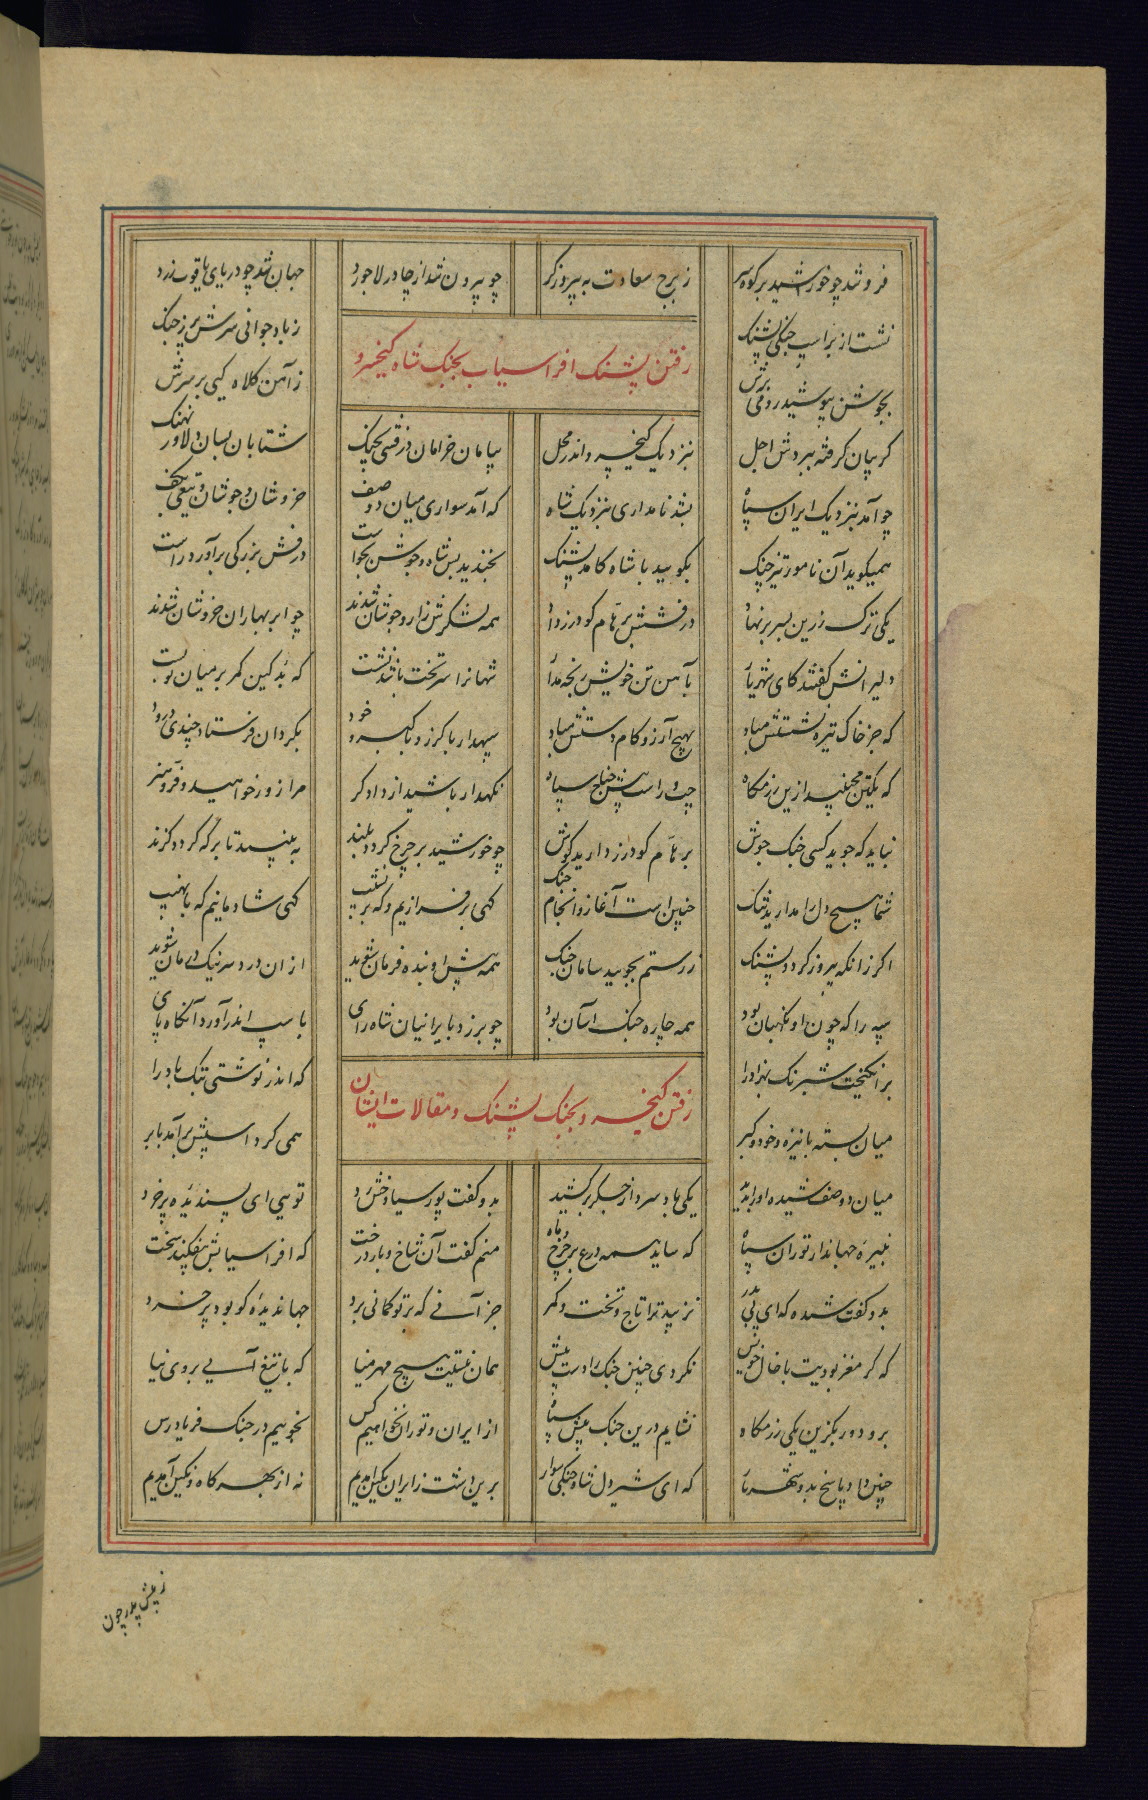 فروشد چو خورشید بر کوه سر ز برج سعادت به پیروزگر چو بیرون شد از چادر لاجورد جهان شد چو دریای یاقوت زرد
نشست از بر اسپ جنگی پشنگ ز باد جوانی سرش پر ز جنگ
رفتن پشنگ افراسیاب بجنگ شاه کیخسرو
بجوشن بپوشید روشن برش ز آهن کلاه کیی بر سرش
کریبان کرفته ببردش اجل بنزدیک کیخسرو اندر محل بیامان خرامان فرقسی بجنگ شتابان بسان دلاور نهنگ
چو آمد بنزدیک ایران سپاه بشد نامداری بنزدیک شاه که آمد سواری میان دو صف خروشان و جوشان و تیغی بکف
همیگوید آن نامور تیزچنگ بگویید با شاه کامد پشنگ بخندید پس شاه و جوشن بخواست درفش بزرگی برآورد راست
یکی ترک زرین بسر بر نهاد درفشش برهّام گودرز داد همه لشگرش زار و جوشان شدند چو ابر بهاران خروشان شدند
دلیرانش گفتند کای شهریار بآهن تن خویش رنجه مدار شهانرا سر تخت باشد نشست که بد کین کمر بر میان تو بست
که جز خاک تیره نشستش مباد بهیچ آرزو کام دستش مباد سپهدار با گرز و با گبر و خود بگردان فرستاد چندی درود
که یکتن مجنبید ازین رزمگاه چپ و راست پیش جناح سپاه نگهدار باشید از دادگر مرا زور خواهید و فرّ و هنر
نباید که جوید کسی جنگ جوش برهّام گودرز دارید گوش چو خورشید بر چرخ گردد بلند ببینید تا بر که گردد گزند
شما هیچ دل را مدارید تنگ چنین است آغاز و انجام جنگ گهی بر فرازیم و گه بر نشیب گهی شادمانیم گه با نهیب
اگر زانکه پیروز گردد پشنگ ز رستم بجویید سامان جنگ همه پیش او بنده فرمان شوید ازان درد سر نیک درمان شوید
سپه را که چون او نگهبان بود همه چاره جنگ آسان بود چو برزد بایرانیان شاه رای باسپ اندر آورد آنگاه پای
برانگیخت شبرنگ بهزاد را که اندر نوشتی بتک باد را
رفتن کیخسرو بجنگ پشنگ و مقالات ایشان
میان بسته با نیزه و خود و گبر همی گرد اسپش برآمد بابر
میان دو صف شیده او را بدید یکی باد سرد از جگر برکشید بدو گفت پور سیاوخش رد تویی ای پسندیده پرخرد
نبیره جهاندار توران سپاه که ساید همی ترگ بر چرخ ماه منم گفت آن شاخ و بار درخت که افراسیابش بیفکند سخت
بدو گفت شیده که ای بی پدر نزیبد ترا تاج و تخت و کمر جز آنی که بر تو گمانی برد جهاندیده کو بود پرخرد
که گر مغز بودیت با خال خویش نکردی چنین جنگ را دست پیش همان نیستت هیچ مهر نیا که با تیغ آیی بروی نیا
برو دور بگزین یکی رزمگاه نشایم درین جنگ پیش سپاه از ایران و توران نخواهیم کس نجوییم در جنگ فریادرس
چنین داد پاسخ بدو شهریار که ای شیردل شاه جنگی سوار برین دشت ز ایران بکین آمدیم نه از بهر گاه و نگین آمدیم
ز پیش پدر چون